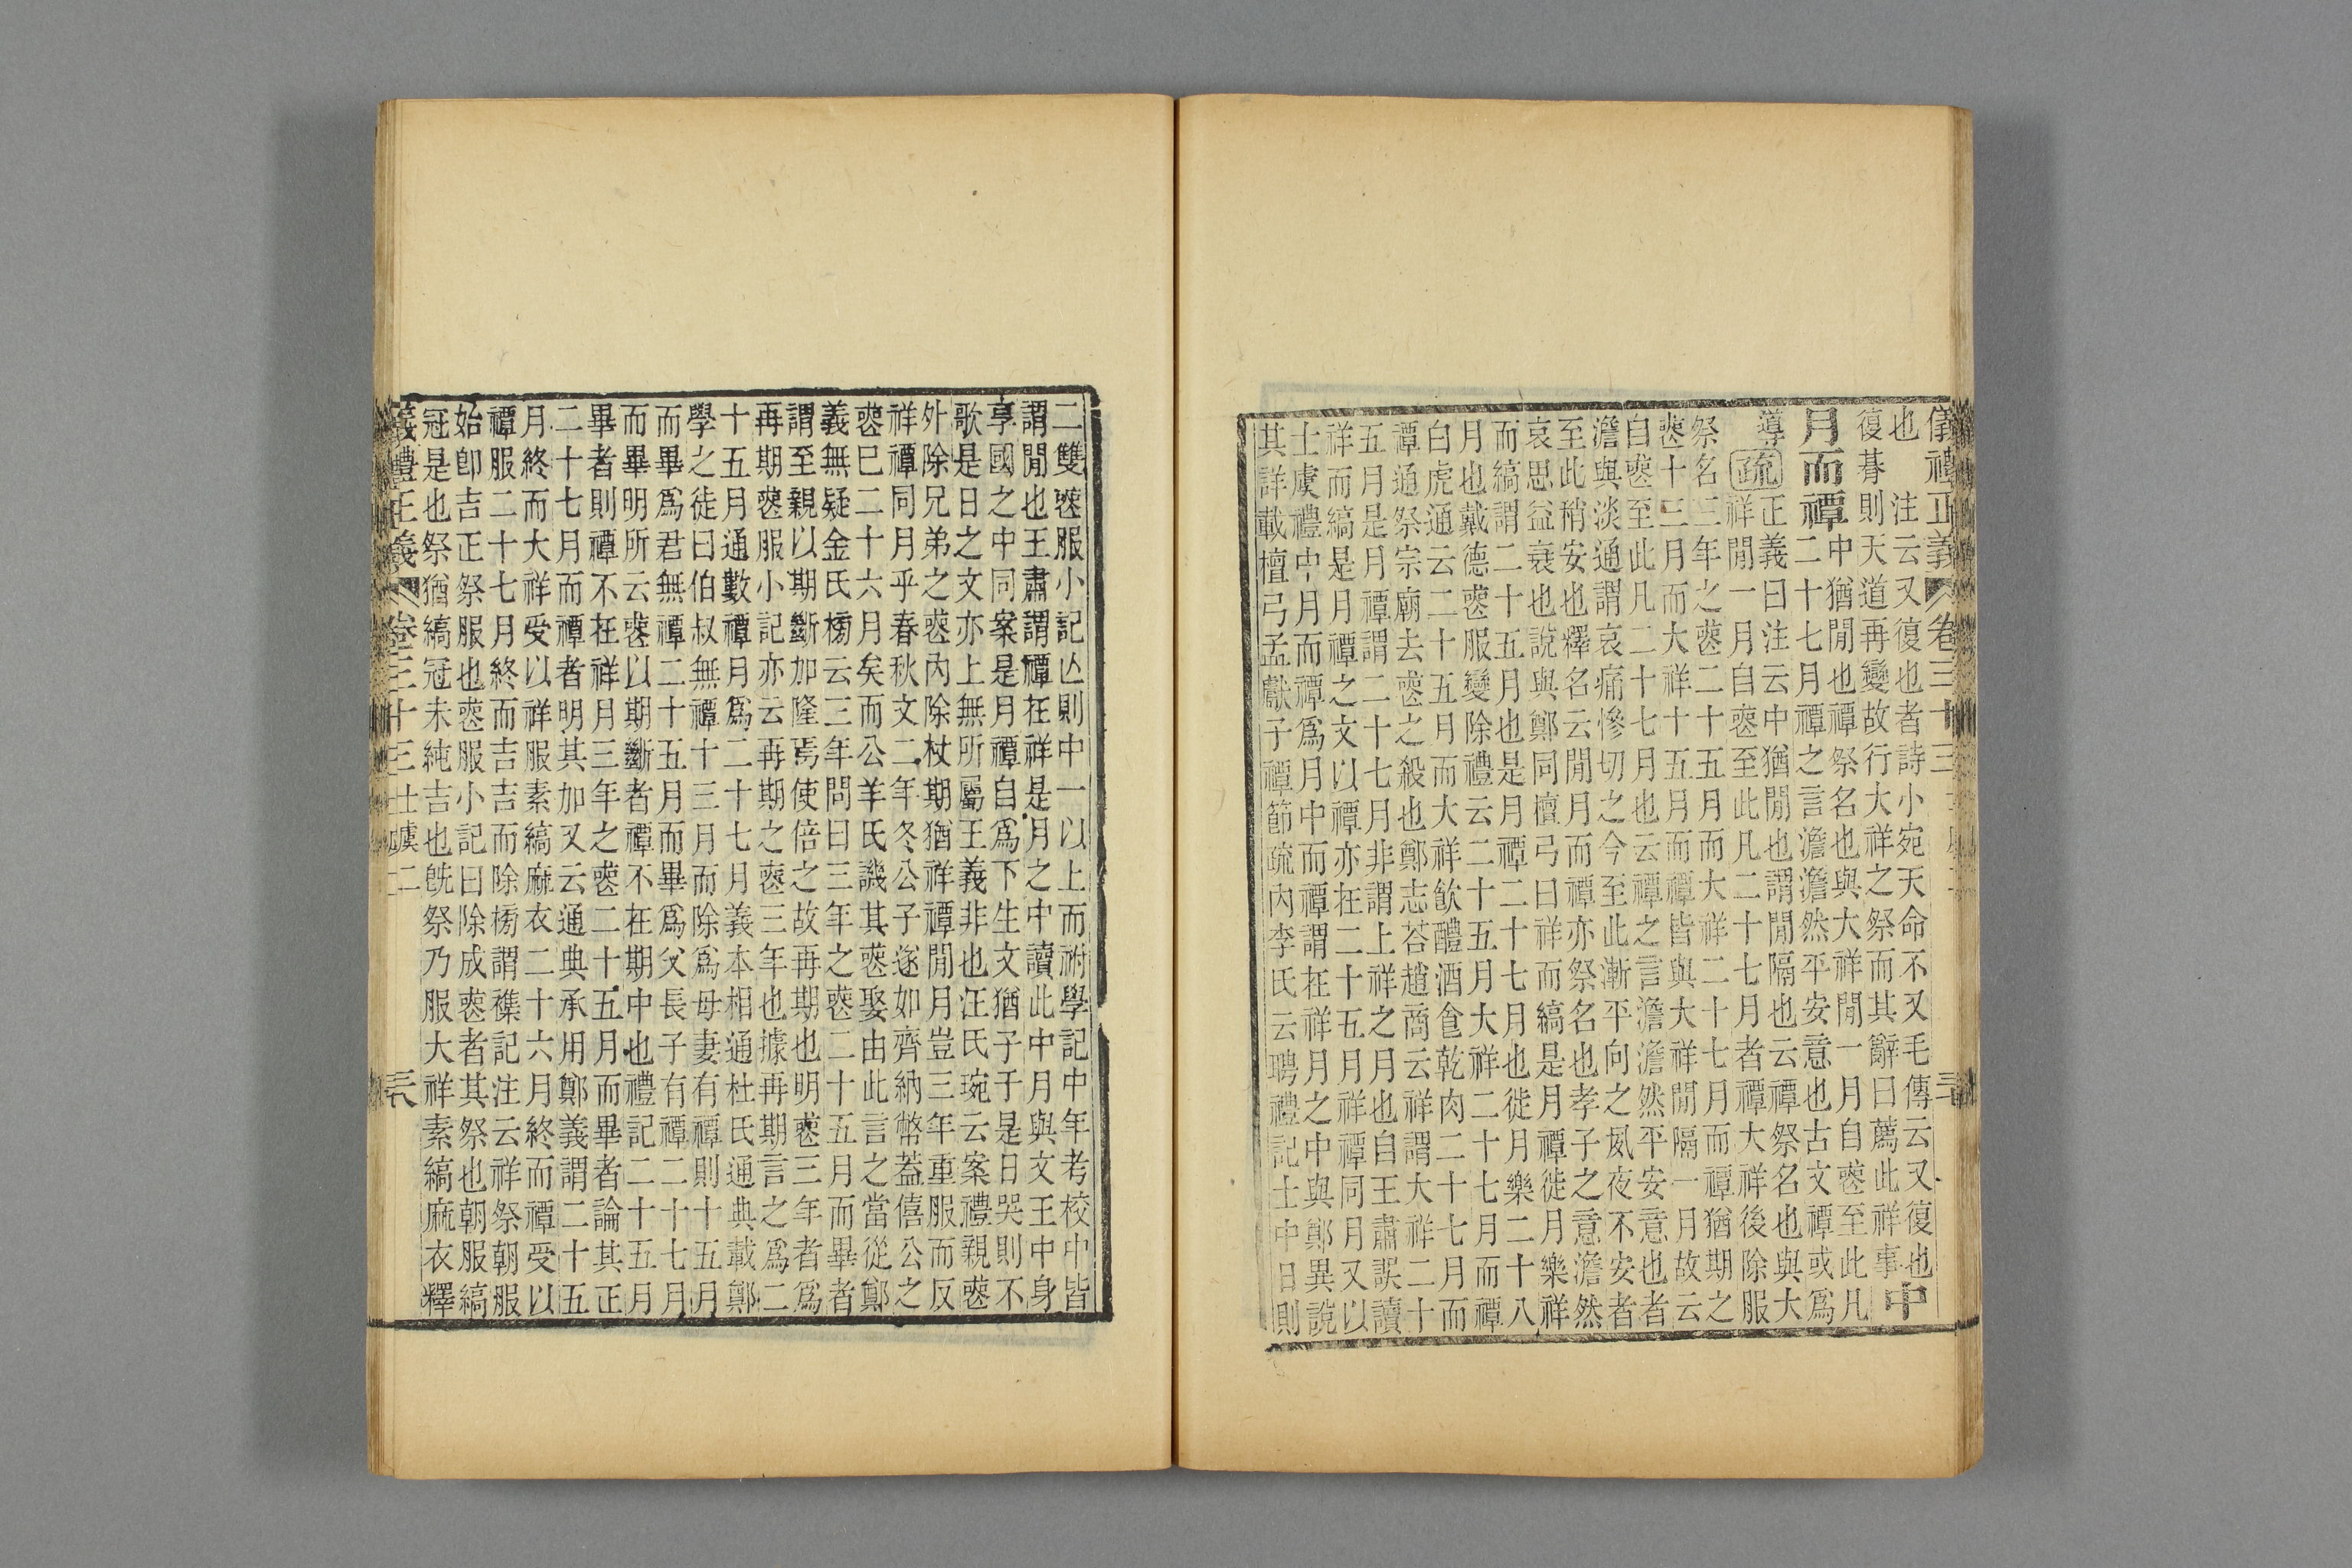 儀禮正義 卷三十三
也 注云又復也者詩小宛天命不又毛傳云又復也
復朞則天道再變故行大祥之祭而其辭曰薦此祥事
中
月而禫
中猶閒也禫祭名也與大祥閒一月自喪至此凡
二十七月禫之言澹澹然平安意也古文禫或爲
導
疏
正義曰注云中猶閒也謂閒隔也云禫祭名也與大
祥閒一月自喪至此凡二十七月者禫大祥後除服
祭名三年之喪二十五月而大祥二十七月而禫猶期之
喪十三月而大祥十五月而禫皆與大祥閒隔一月故云
自喪至此凡二十七月也云禫之言澹澹然平安意也者
澹與淡通謂哀痛慘切之今至此漸平向之夙夜不安者
至此稍安也釋名云閒月而禫亦祭名也孝子之意澹然
哀思益衰也說與鄭同檀弓曰祥而縞是月禫徙月樂祥
而縞謂二十五月也是月禫二十七月也徙月樂二十八
月也戴德喪服變除禮云二十五月大祥二十七月而禫
白虎通云二十五月而大祥飮醴酒食乾肉二十七月而
禫通祭宗廟去喪之殺也鄭志荅趙商云祥謂大祥二十
五月是月禫謂二十七月非謂上祥之月也自王肅誤讀
祥而縞是月禫之文以禫亦在二十五月祥禫同月又以
士虞禮中月而禫爲月中而禫謂在祥月之中與鄭異說
其詳載檀弓孟獻子禫節疏內李氏云聘禮記士中日則
二雙喪服小記亾則中一以上而祔學記中年考校中皆
謂閒也王肅謂禫在祥是月之中讀此中月與文王中身
享國之中同案是月禫自爲下生文猶子于是日哭則不
歌是日之文亦上無所屬王義非也汪氏琬云案禮親喪
外除兄弟之喪內除杖期猶祥禫閒月豈三年重服而反
祥禫同月乎春秋文二年冬公子遂如齊納幣蓋僖公之
喪巳二十六月矣而公羊氏譏其喪娶由此言之當從鄭
義無疑金氏榜云三年問曰三年之喪二十五月而畢者
謂至親以期斷加隆焉使倍之故再期也明喪三年者爲
再期喪服小記亦云再期之喪三年也據再期言之爲二
十五月通數禫月爲二十七月義本相通杜氏通典載鄭
學之徒曰伯叔無禫十三月而除爲母妻有禫則十五月
而畢爲君無禫二十五月而畢爲父長子有禫二十七月
而畢明所云喪以期斷者禫不在期中也禮記二十五月
畢者則禫不在祥月三年之喪二十五月而畢者論其正
二十七月而禫者明其加又云通典承用鄭義謂二十五
月終而大祥受以祥服素縞麻衣二十六月終而禫受以
禫服二十七月終而吉吉而除榜謂襍記注云祥祭朝服
始卽吉正祭服也喪服小記曰除成喪者其祭也朝服縞
冠是也祭猶縞冠未純吉也旣祭乃服大祥素縞麻衣釋
義禮正義 卷三十三士虞二